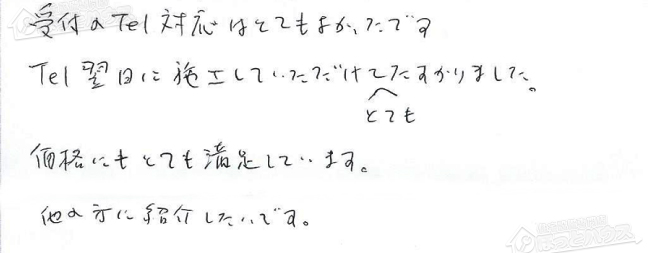 受付のTel対応はとてもよかったです
Tel翌日に施工していただけてたすかりました。
とても
価格にもとても満足しています。
他の方に紹介したいです。